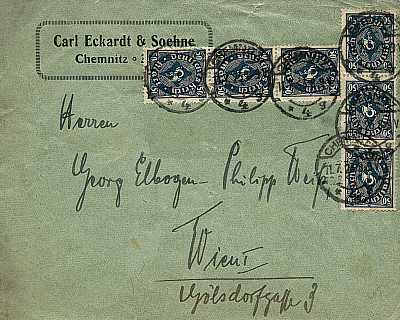 Carl Eckardt & Soehne
Chemnitz
Herren
Georg Elbogen - Philipp Weiß
Wien I
Gölsdorfgasse 3